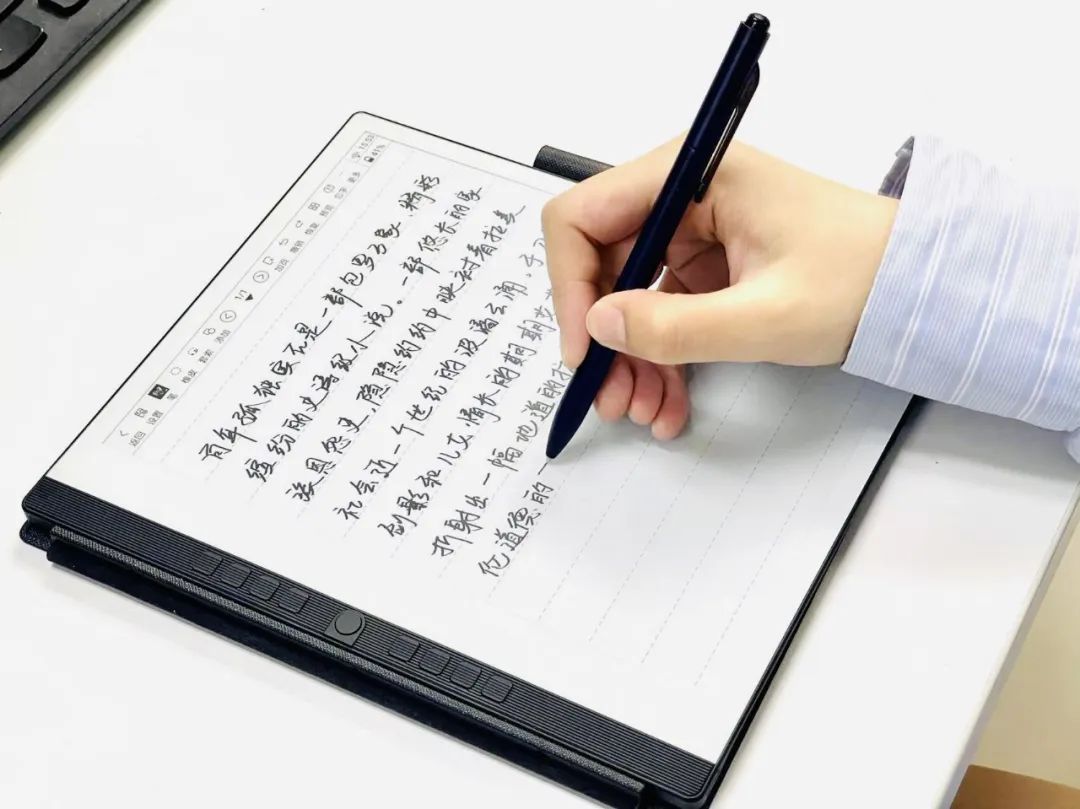 15:53
41%
返回 设置 笔 橡皮 套索 添加 1/1 加页 撤销 恢复 模板 云字 更多
百年孤独实不是一部包罗万象、精彩
缤纷的史诗级小说。一部悠长的家
族恩怨史，隐隐约约中映衬着拉美
社会近一个世纪的波谲云涌，
刻影和儿女情长的
折射出一幅地道的拉
伦道德的一